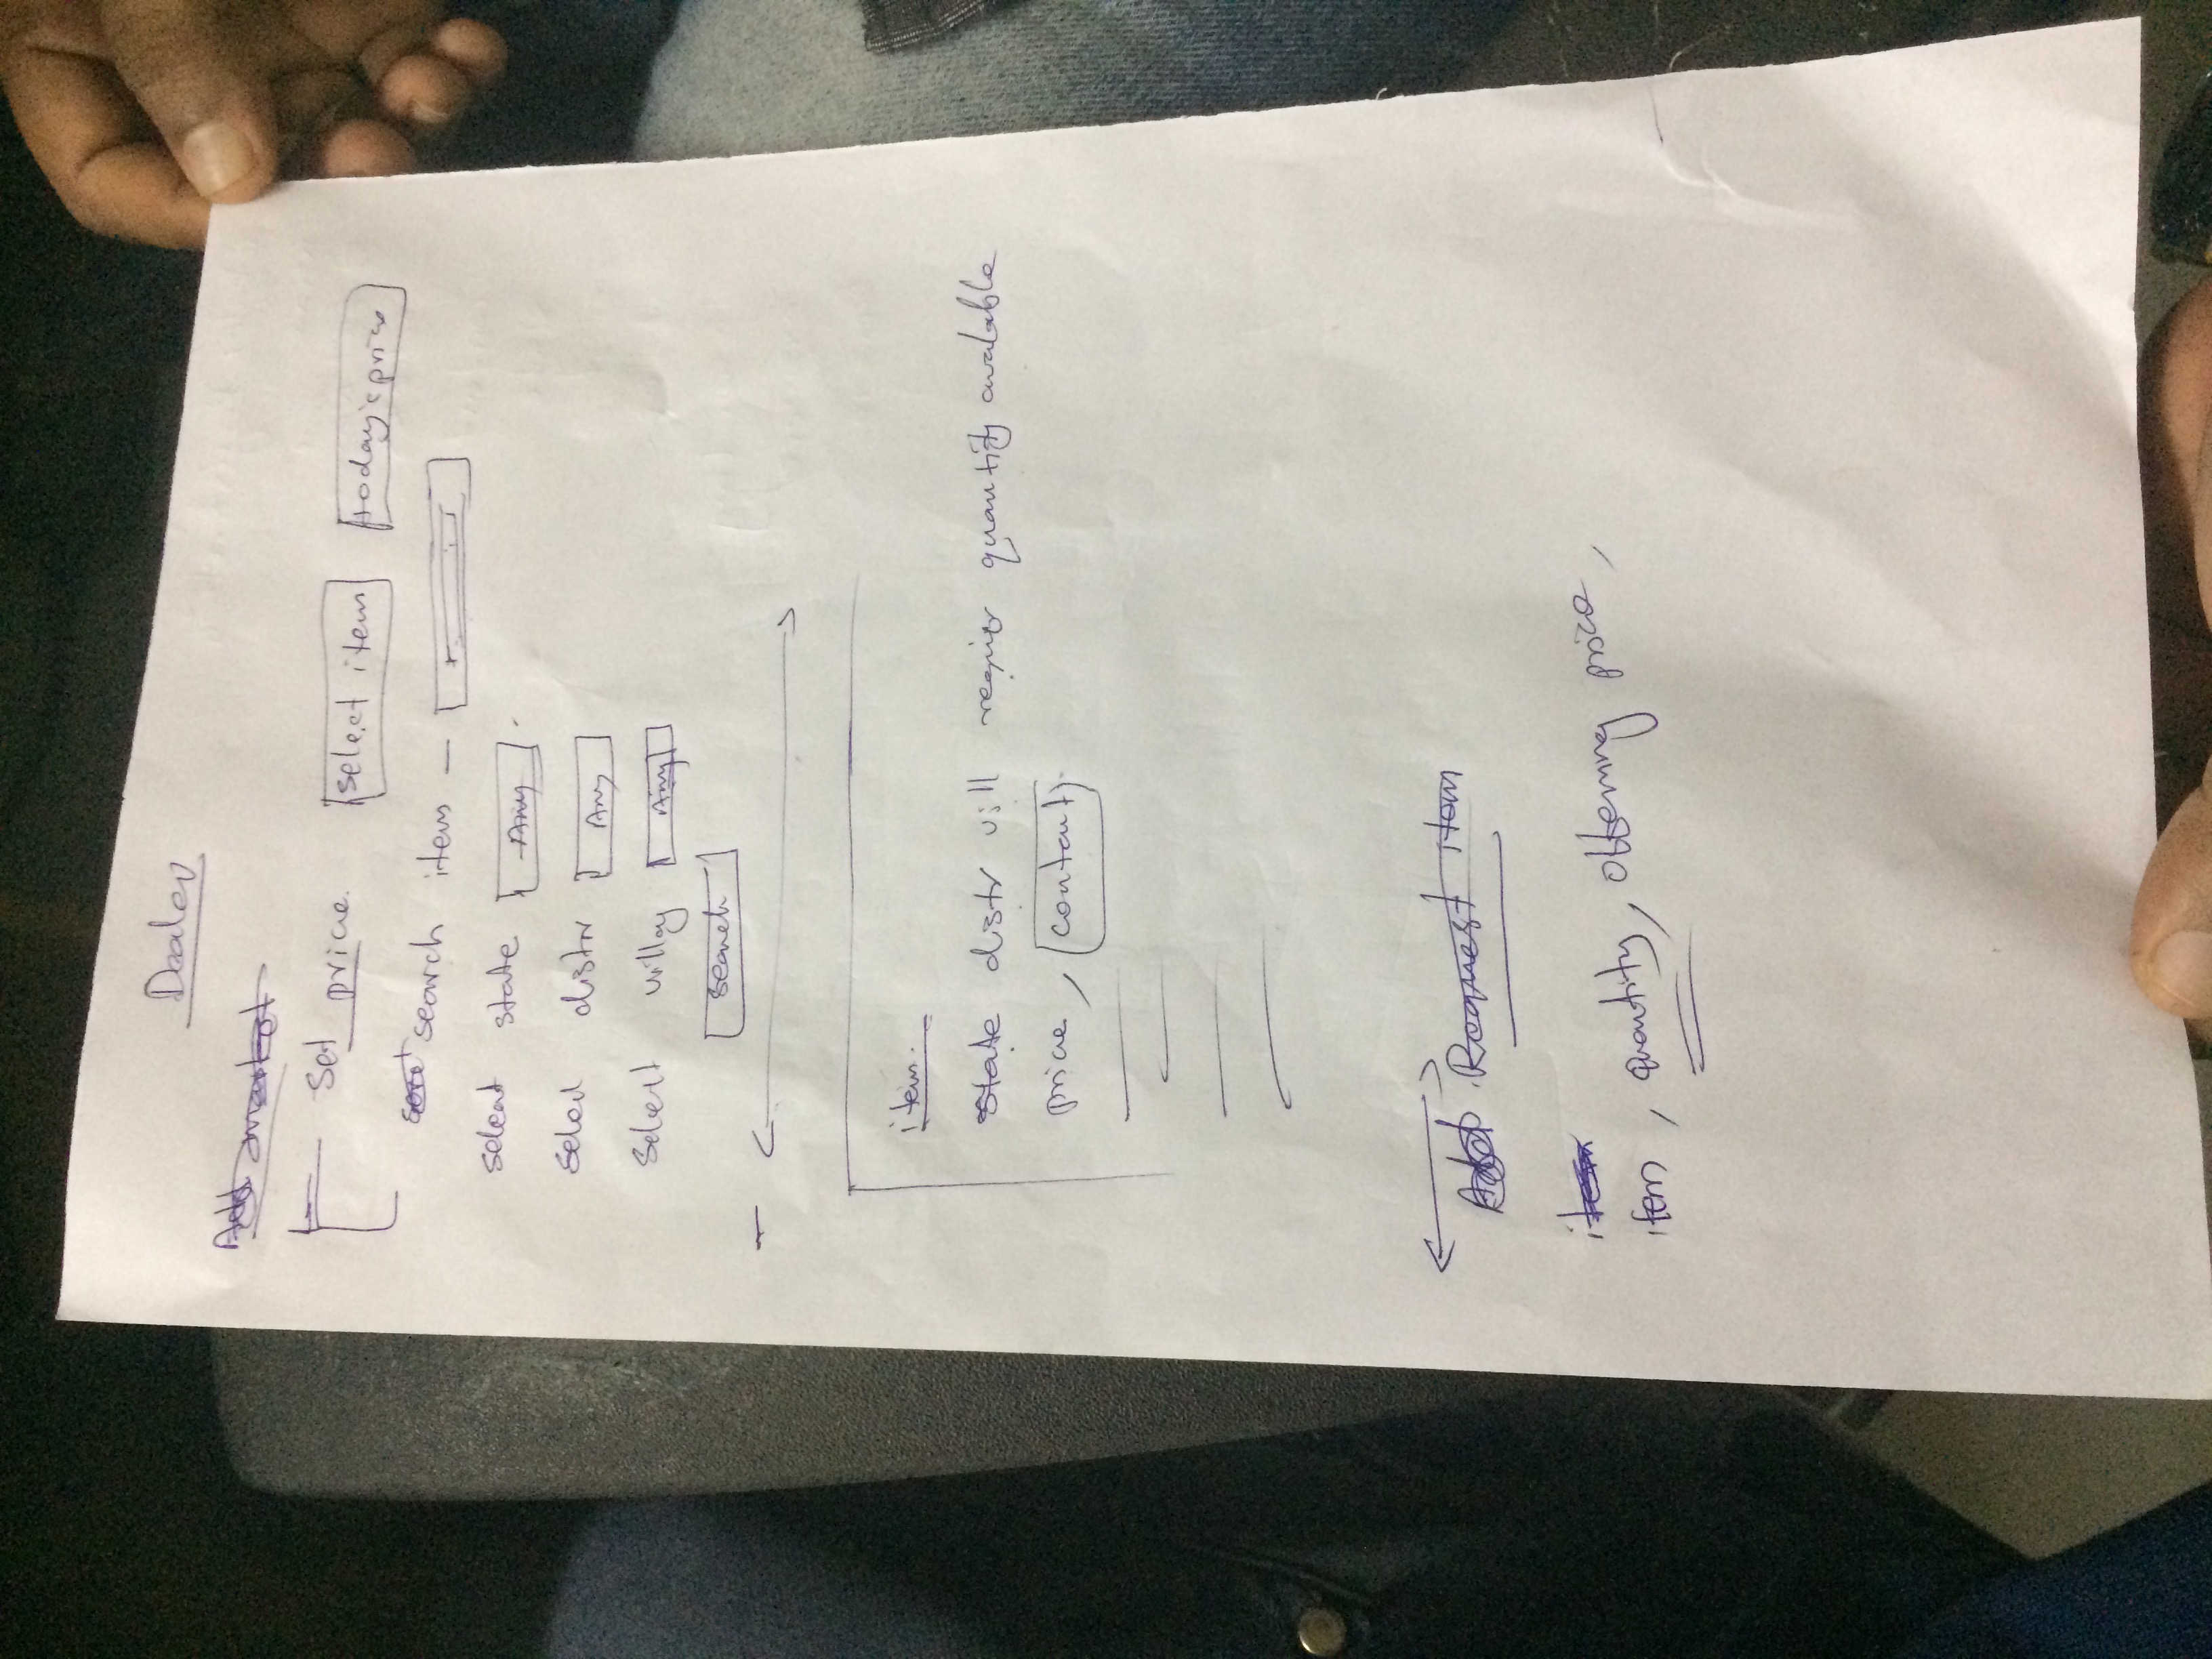 Dealer
Add market
Set price. select item today's price
search item —
select state Any
select distr Any
Select villag Any
search
item.
state distr vill requir quantity available
price, contact
Add Request item
item
item, quantity, offerring price,